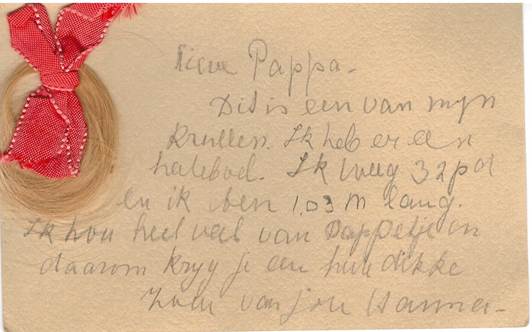 Lieve Pappa -
Dit is een van mijn
krullen. Ik heb er een
heleboel. Ik weeg 32 pd
en ik ben 1.03 M lang.
Ik hou heel veel van Pappetje en
daarom kryg je een hele dikke
zoen van jou Hanna -